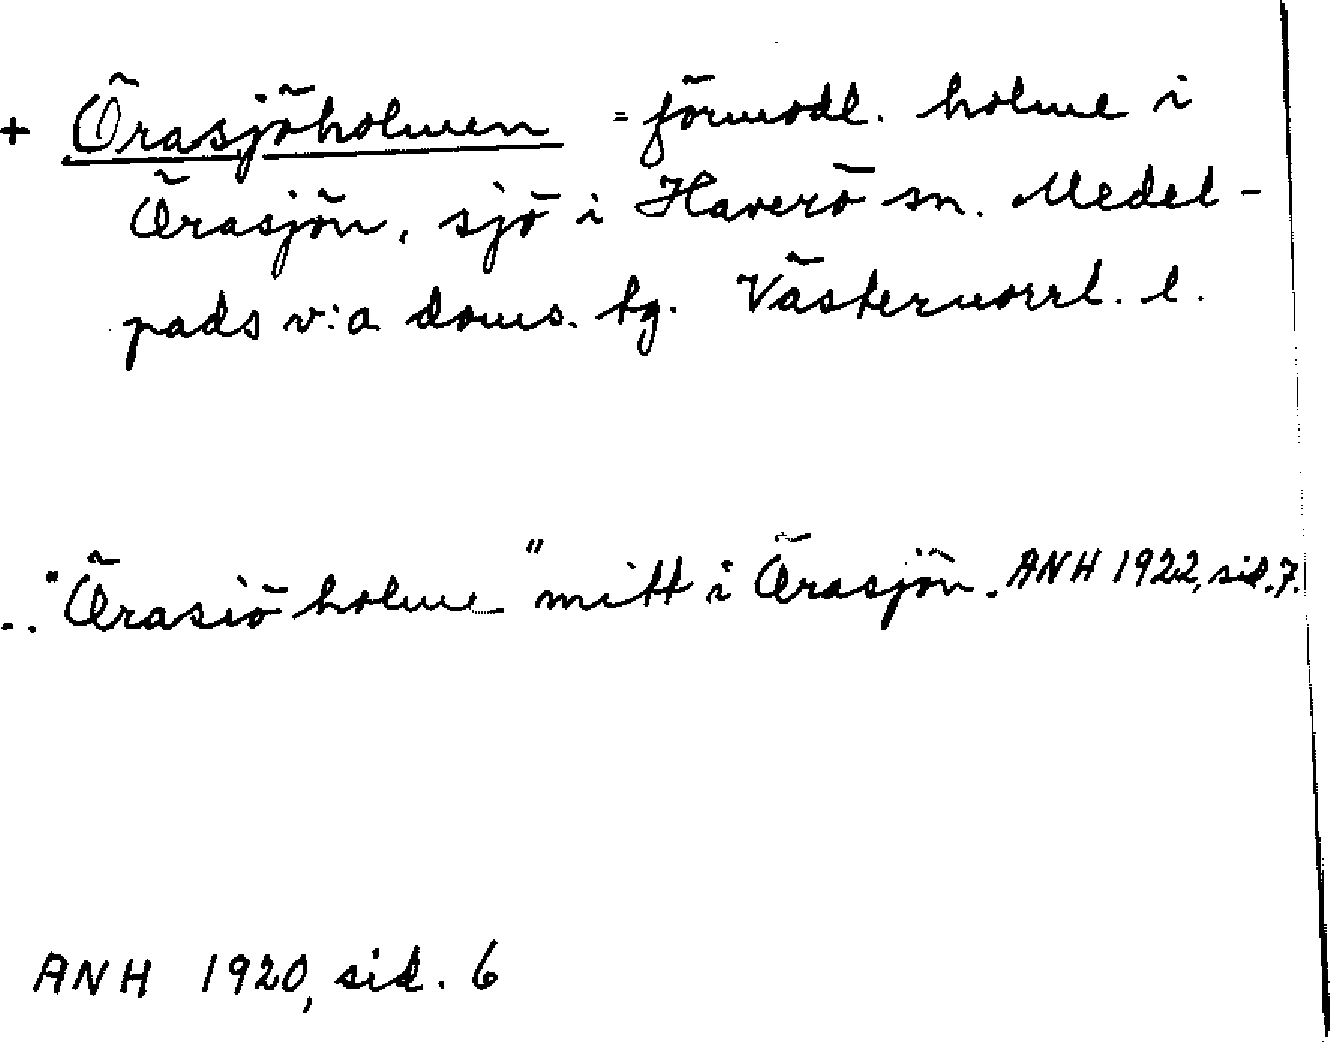 + Örasjöholmen = förmodl. holme i
Örasjön, sjö i Haverö sn. Medel-
pads v:a doms. tg. Västernorrl. l.
.. "Örasiö holme" mitt i Örasjön. ANH 1922, sid. 7.
ANH 1920, sid. 6